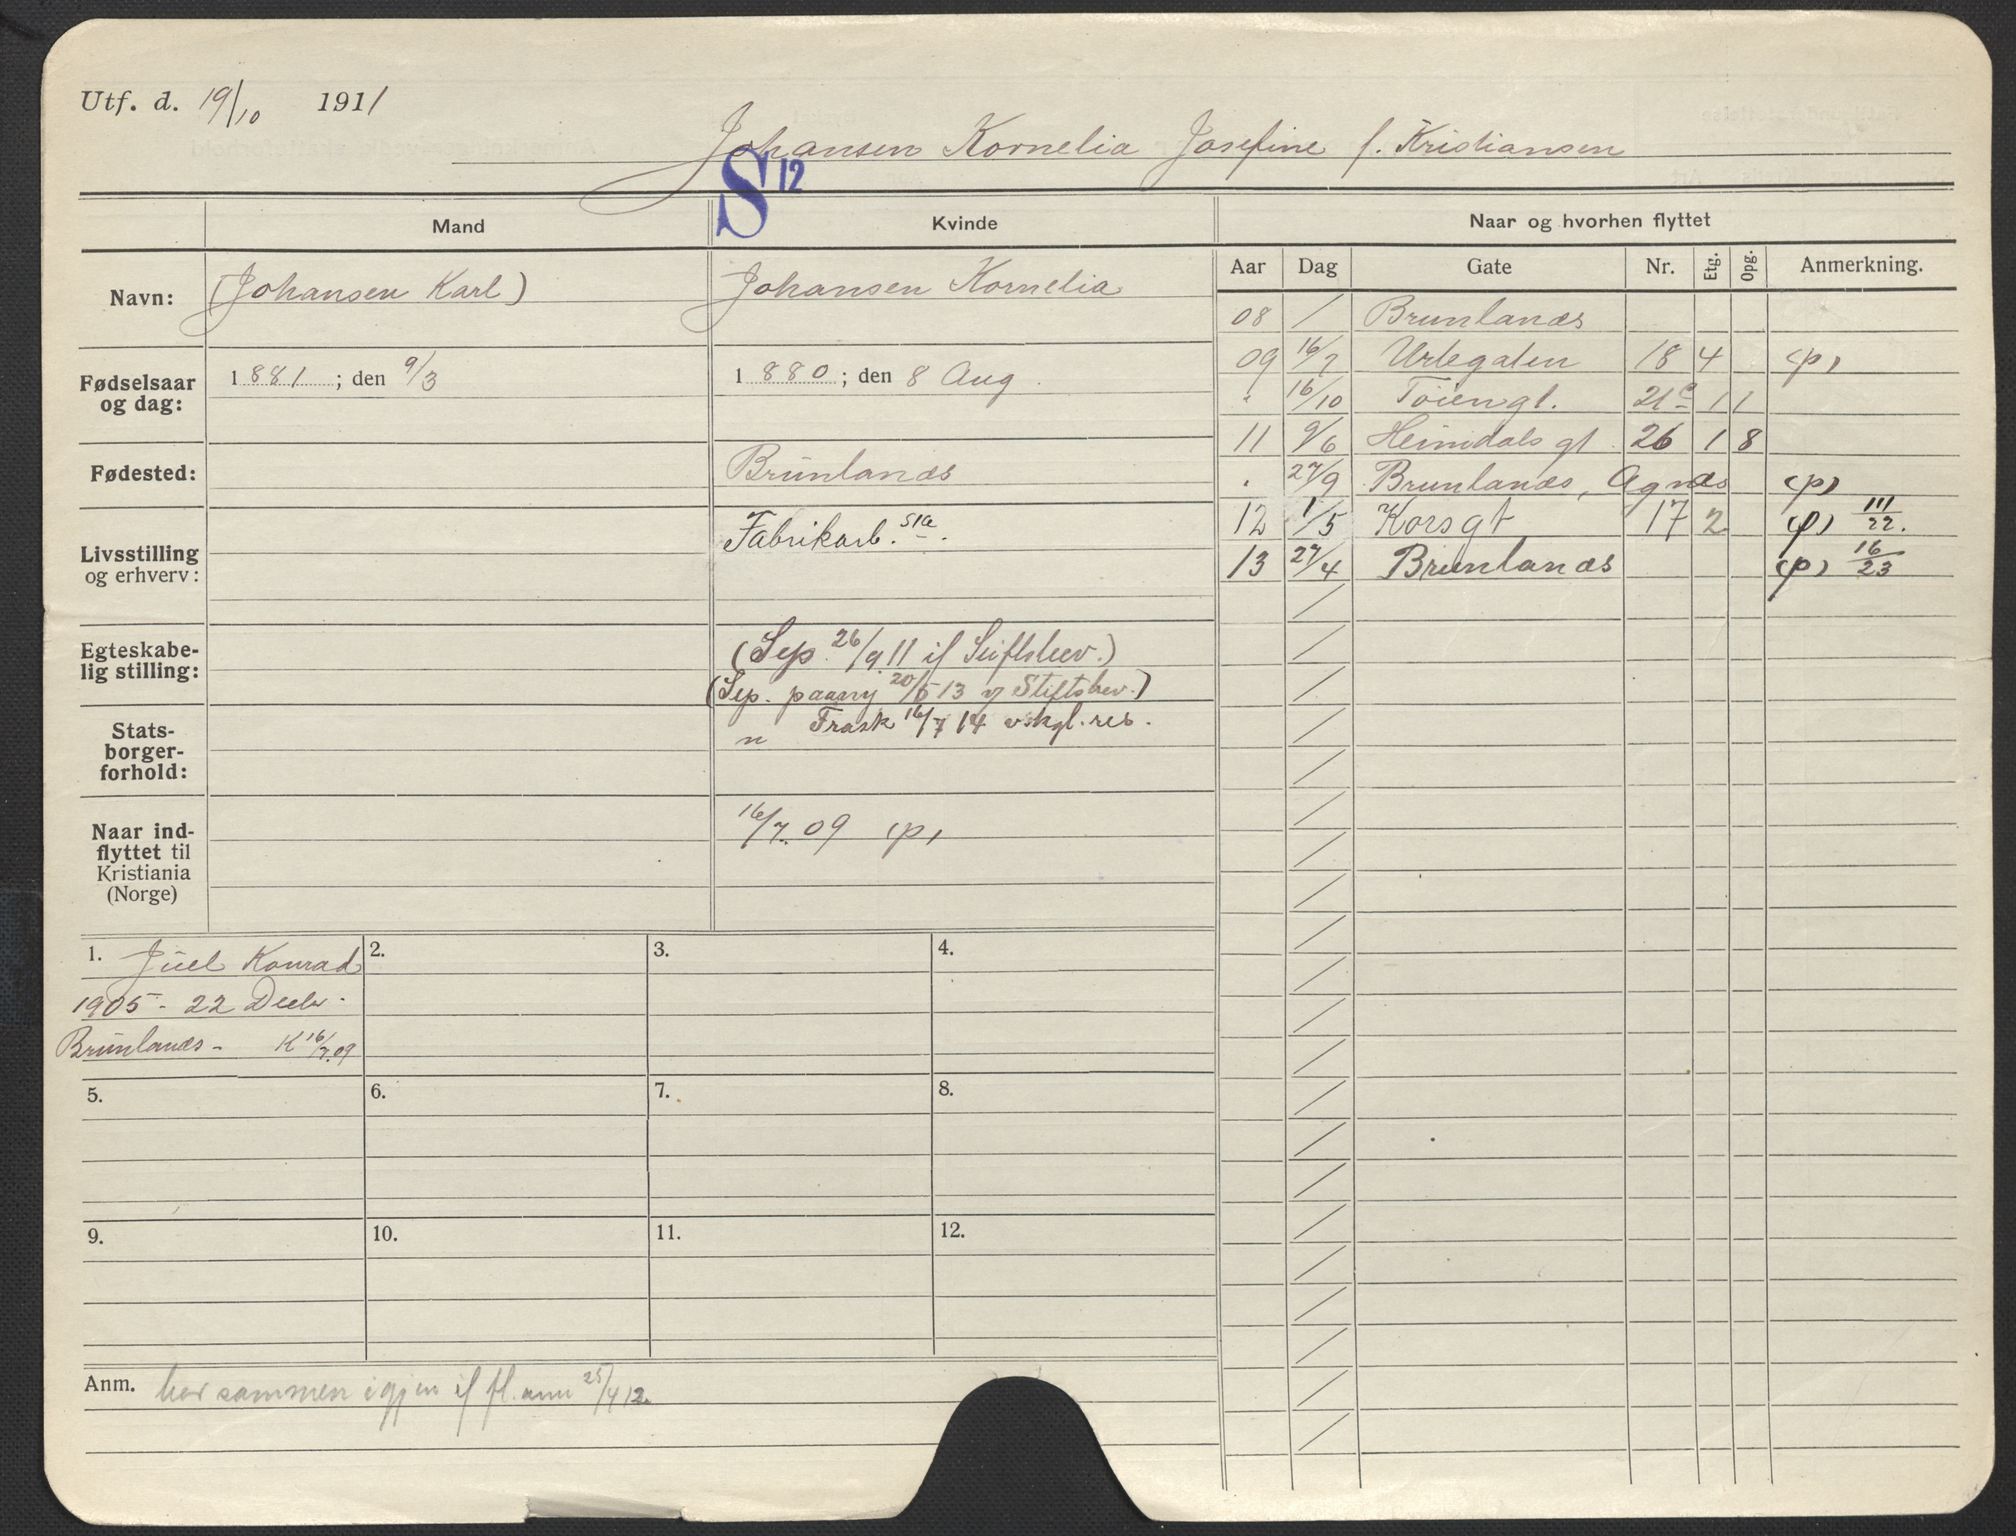 Utf. d. 19/10 1911
Johansen Kornelia Josefine f. Kristiansen
S 12
Mand Kvinde Naar og hvorhen flyttet
Aar Dag Gate Nr. Etg. Opg. Anmerkning.
Navn: (Johansen Karl) Johansen Kornelia
Fødselsaar og dag: 1881; den 9/3 1880; den 8 Aug.
Fødested: Brunlanæs
Livsstilling og erhverv: Fabrikarb.
Egteskabelig stilling: (Sep. 26/9 11 if Stiftsbev.)
(Sep. paany 20/5 13 v/ Stiftsbev.)
" Frask 16/7 14 v kgl. res.
Statsborgerforhold:
Naar indflyttet til Kristiania (Norge) 16/7. 09 (p)
08 / Brunlanæs
09 16/7 Urtegaten 18 4 (p)
" 16/10 Töiengt. 21c 1 1
11 9/6 Heimdals gt 26 1 8
" 27/9 Brunlanæs, Agnæs (p)
12 1/5 Korsgt 17 2 (p) 111/22.
13 27/4 Brunlanæs (p) 16/23
1. Juel Konrad
1905 - 22 Decbr.
Brunlanæs - K 16/7. 09
2.
3.
4.
5.
6.
7.
8.
9.
10.
11.
12.
Anm. bor sammen igjen if fl. anm 25/4 12.